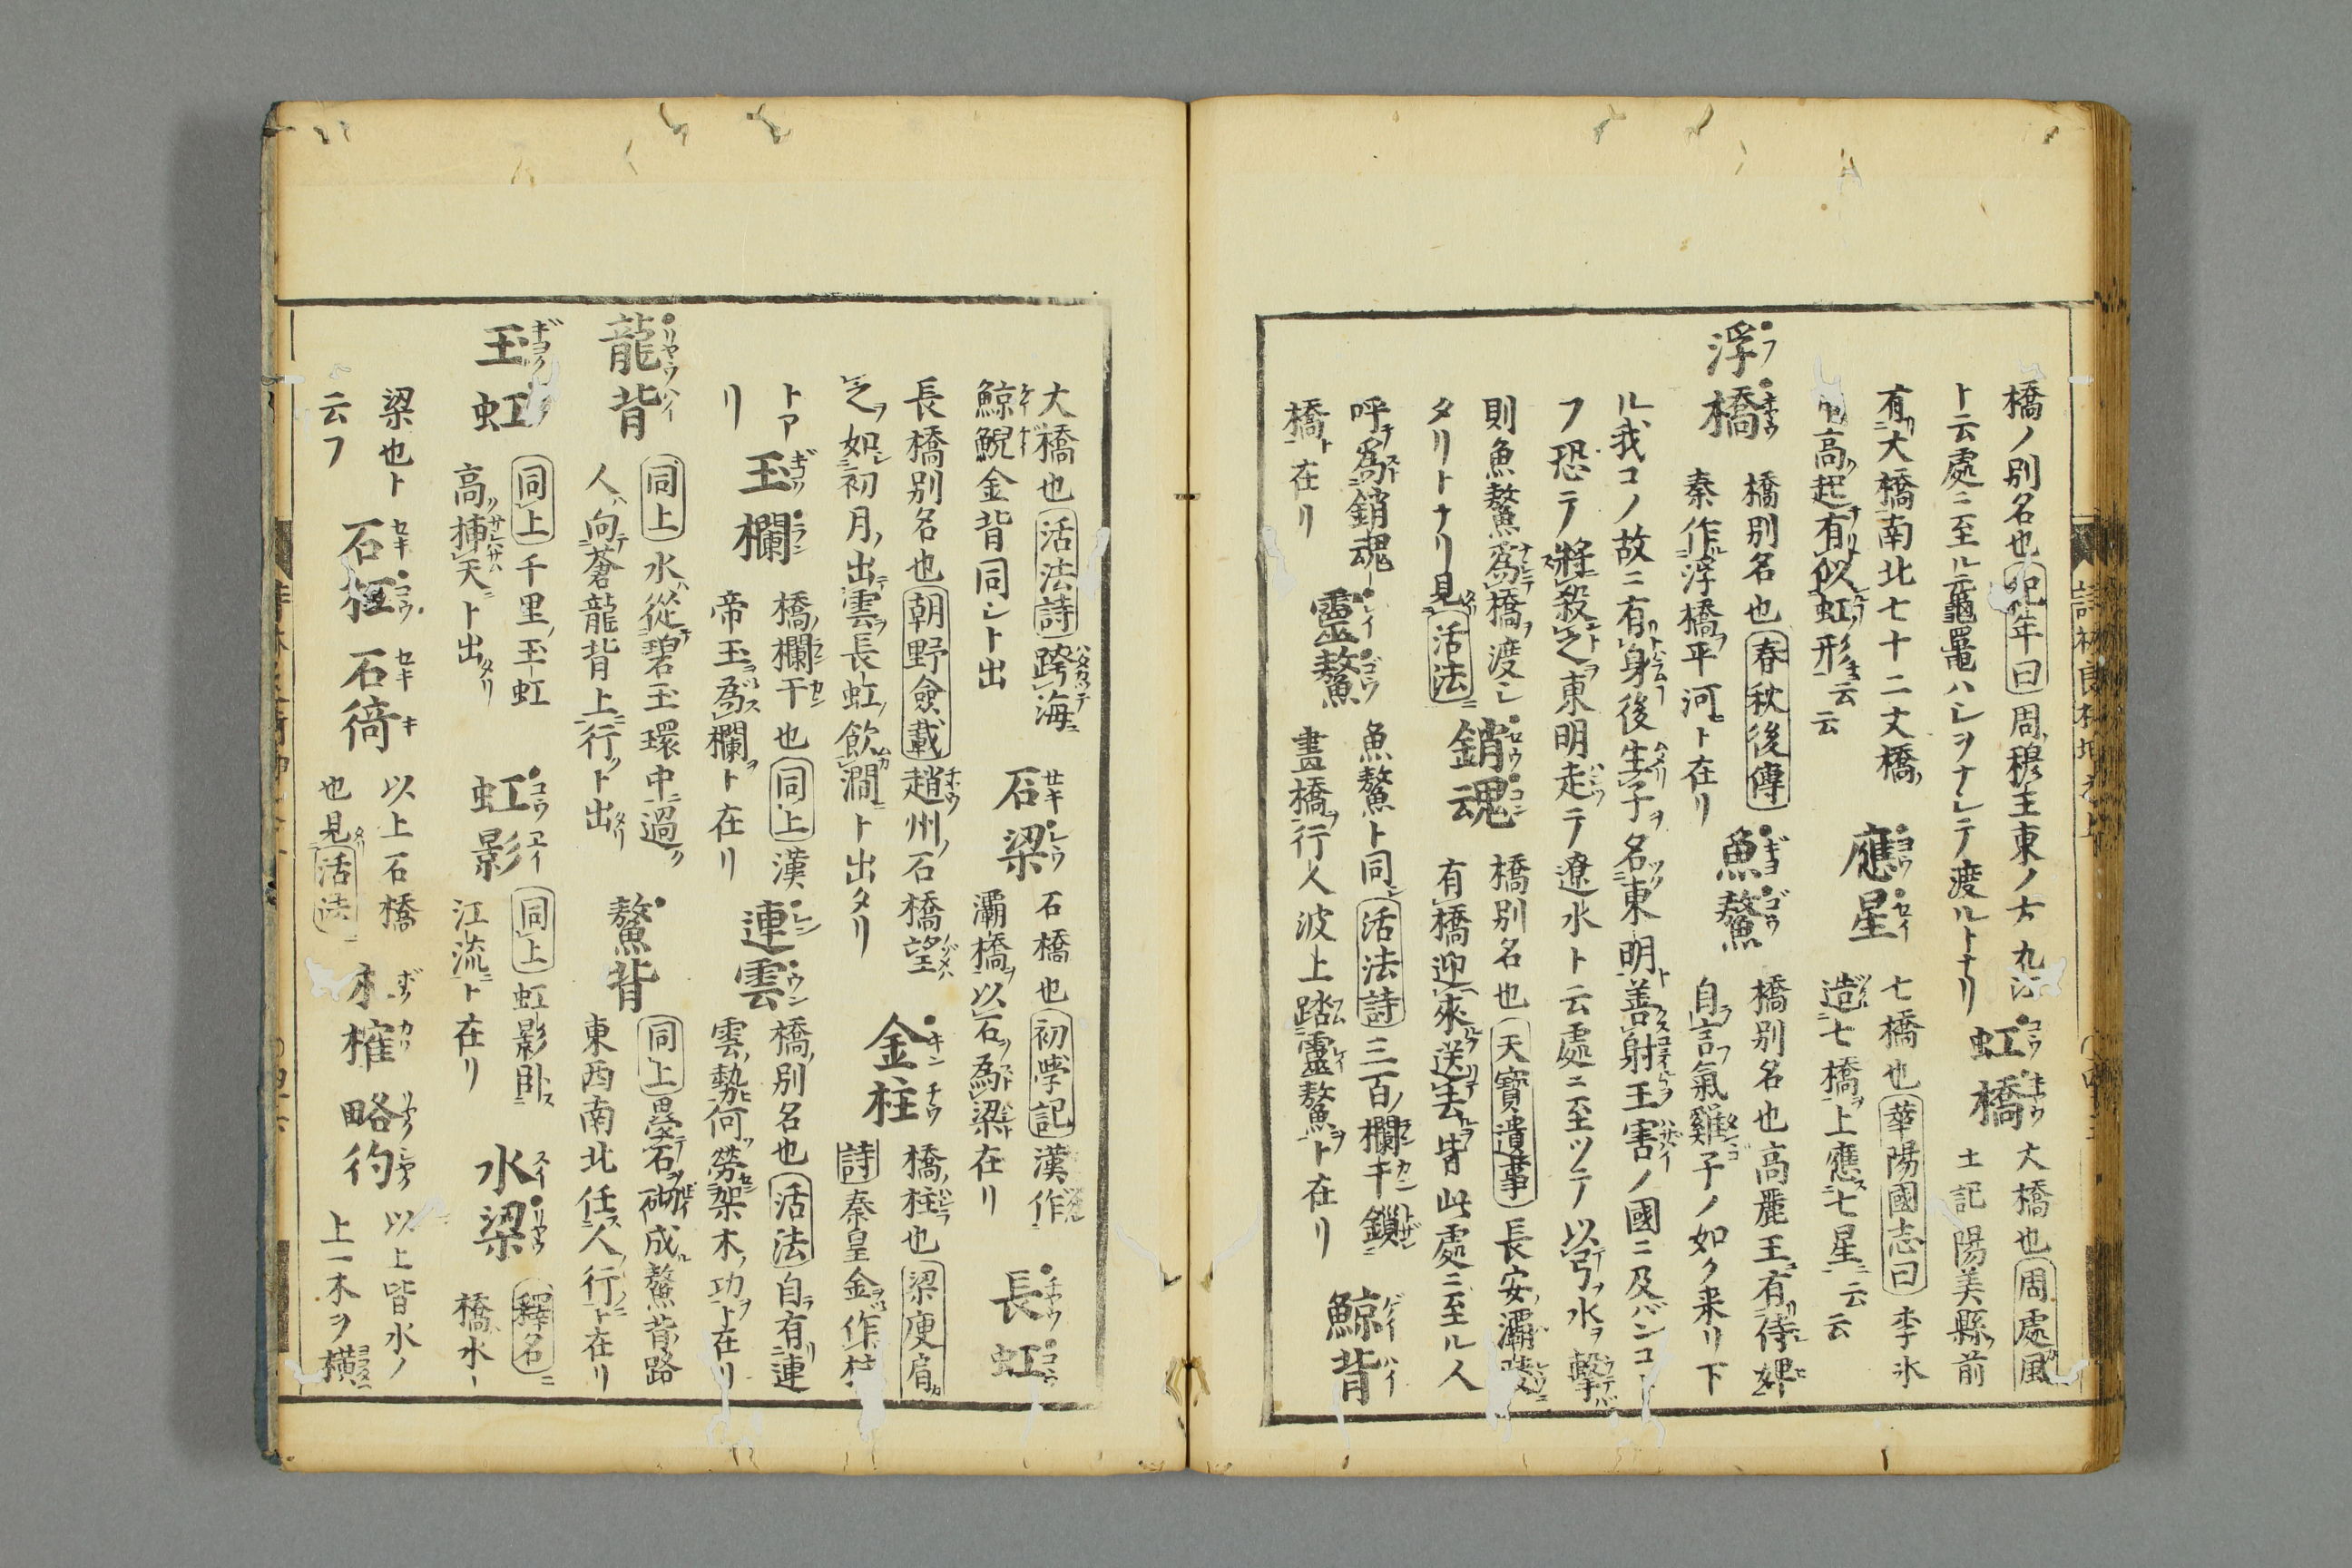 橋ノ別名也紀年曰周穆王東ノ方九江
ト云處ニ至ル黿鼉ハシヲナレテ渡ルトナリ
虹橋
大橋也周處風
土記陽美縣前
有大橋南北七十二丈橋
高起有似虹形云云
應星
七橋也華陽國志曰李氷
造七橋上應七星云云
浮橋
橋別名也春秋後傳
秦作浮橋平河ト在リ
魚鰲
橋別名也高麗王有侍婢
自言氣雞子ノ如ク来リ下
ル我コノ故ニ有身後生子名東明善射王害ノ國ニ及バンコ
フ恐テ將殺之東明走テ遼水ト云處ニ至ツテ以弓水ヲ擊
則魚鰲為橋渡シ
タリトナリ見活法
銷魂
橋別名也天寶遺事長安灞陵
有橋迎來送去皆此處ニ至ル人
呼為銷魂
橋ト在リ
靈鰲
魚鰲ト同活法詩三百欄干鎖
畫橋行人波上踏靈鰲ト在リ
鯨背
大橋也活法詩跨海
鯨鯢金背同シト出
石梁
石橋也初學記漢作
灞橋以石為梁在リ
長虹
長橋別名也朝野僉載趙州石橋望
之如初月出雲長虹飲澗ト出タリ
金柱
橋柱也梁庾肩
詩秦皇金作柱
トアリ
玉欄
橋欄干也同上漢
帝玉為欄ト在リ
連雲
橋別名也活法自有連
雲勢何勞架木功ト在リ
龍背
同上水從碧玉環中過
人向蒼龍背上行ト出
鰲背
同上疊石砌成鰲背路
東西南北任人行ト在リ
玉虹
同上千里玉虹
高挿天ト出
虹影
同上虹影臥
江流ト在リ
水梁
釋名橋水
梁也ト
云フ
石矼
石徛
以上石橋
也見活法
木榷
略彴
以上皆水ノ
上一木ヲ橫